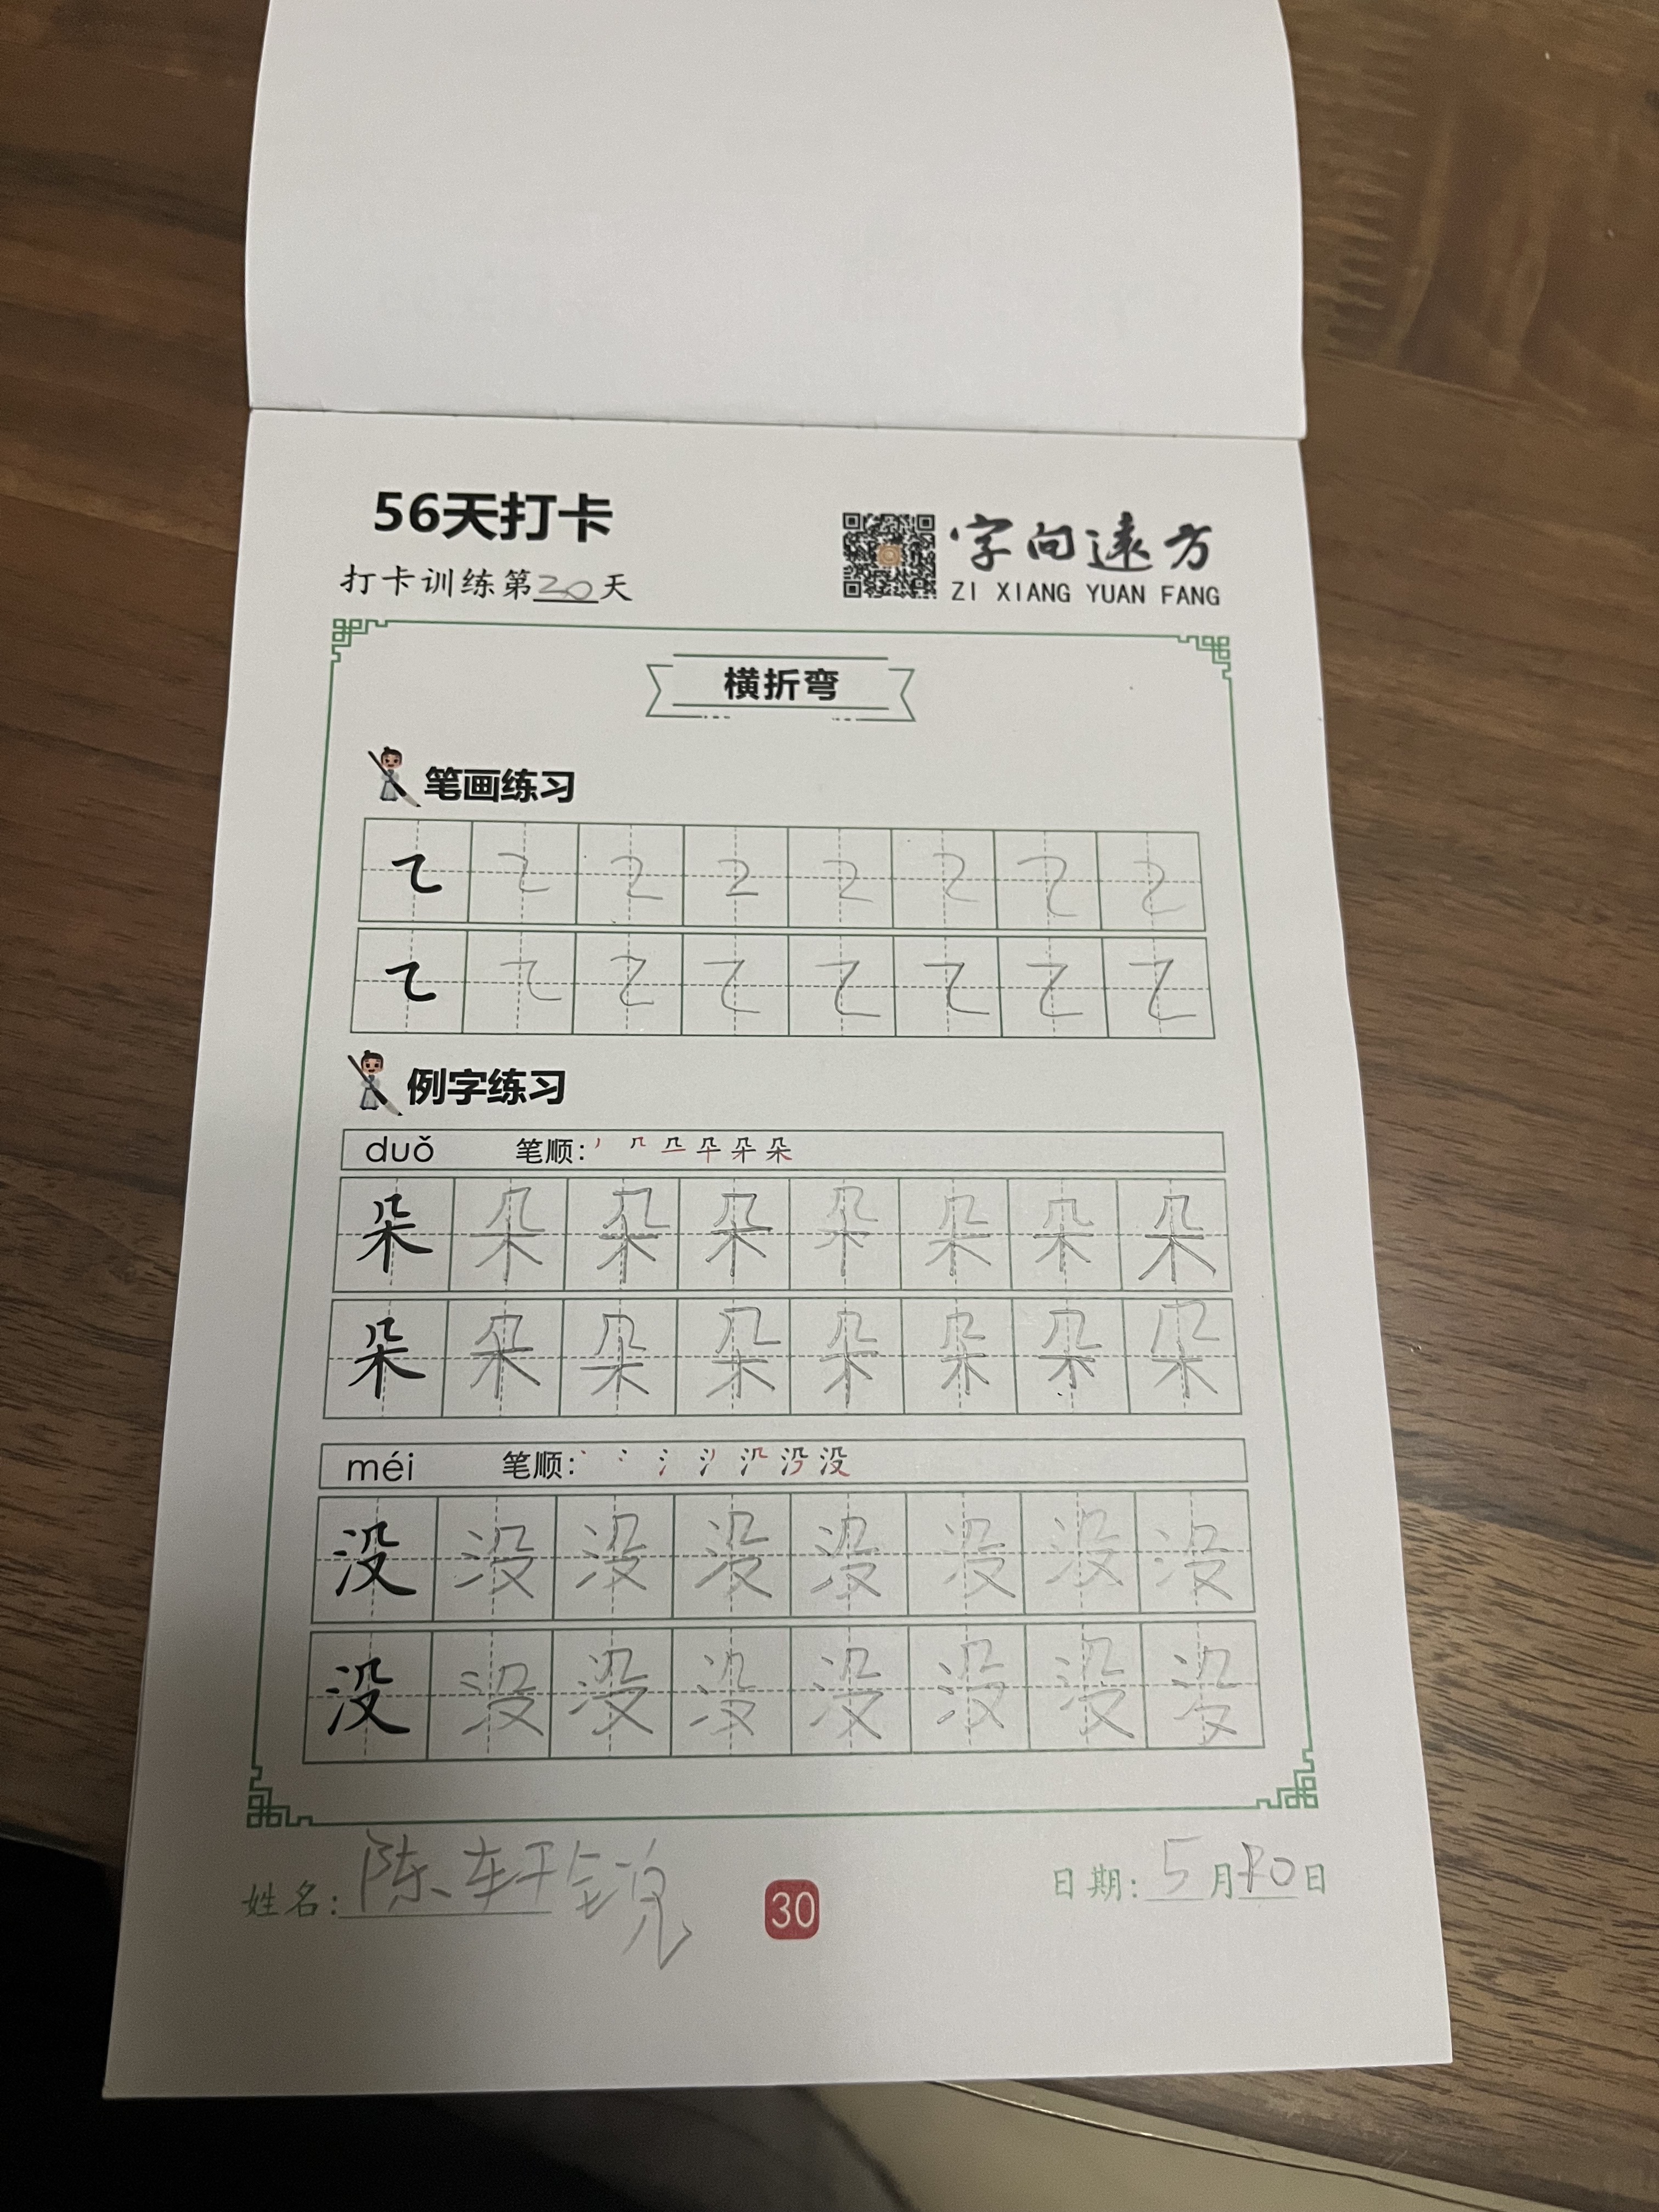 56天打卡
字向远方
打卡训练第20天
ZI XIANG YUAN FANG
横折弯
笔画练习
㇍ ㇍ ㇍ ㇍ ㇍ ㇍ ㇍ ㇍
㇍ ㇍ ㇍ ㇍ ㇍ ㇍ ㇍ ㇍
例字练习
duǒ 笔顺:
朵 朵 朵 朵 朵 朵 朵 朵
朵 朵 朵 朵 朵 朵 朵 朵
méi 笔顺:
没 没 没 没 没 没 没 没
没 没 没 没 没 没 没 没
姓名: 陈轩锐
30
日期: 5月 日